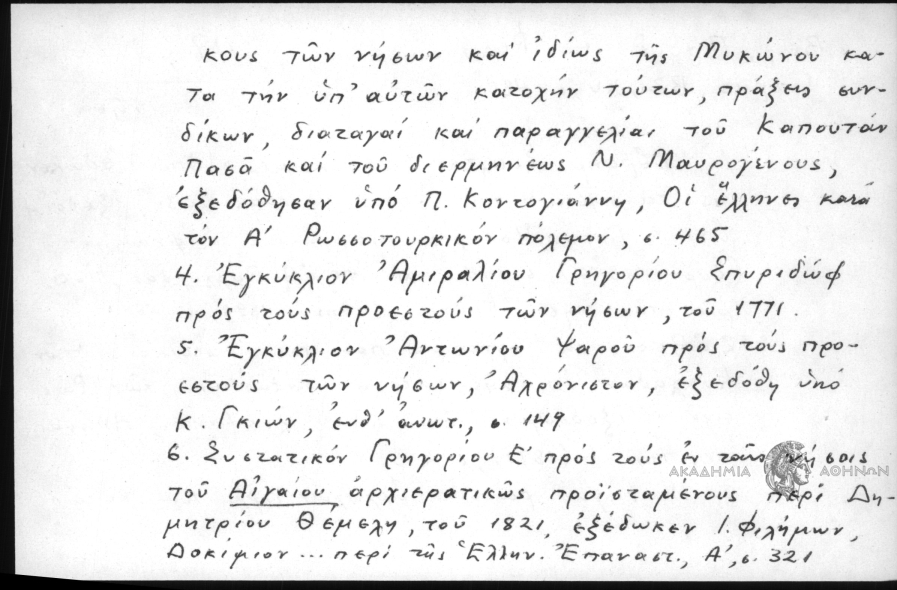 κους τῶν νήσων καί ἰδίως τῆς Μυκόνου κα-
τα τήν ὑπ' αὐτῶν κατοχήν τούτων, πράξεις συν-
δίκων, διαταγαί καί παραγγελίαι τοῦ Καπουτάν
Πασᾶ καί τοῦ διερμηνέως Ν. Μαυρογένους,
ἐξεδόθησαν ὑπό Π. Κοντογιάννη, Οἱ ἕλληνες κατά
τόν Α' Ρωσσοτουρκικόν πόλεμον, σ. 465
4. Ἐγκύκλιον Ἀμιραλίου Γρηγορίου Σπυριδώφ
πρός τούς προεστούς τῶν νήσων, τοῦ 1771.
5. Ἐγκύκλιον Ἀντωνίου Ψαροῦ πρός τούς προ-
εστούς τῶν νήσων, Ἀχρόνιστον, ἐξεδόθη ὑπό
Κ. Γκιών, ἐνθ' ἀνωτ., σ. 149
6. Συστατικόν Γρηγορίου Ε' πρός τούς ἐν ταῖς νήσοις
ΑΚΑΔΗΜΙΑ ΑΘΗΝΩΝ
τοῦ Αἰγαίου ἀρχιερατικῶς προϊσταμένους περί Δη-
μητρίου Θέμελη, τοῦ 1821, ἐξέδωκεν Ι. Φιλήμων,
Δοκίμιον ... περί τῆς Ἑλλην. Ἐπαναστ., Α', σ. 321